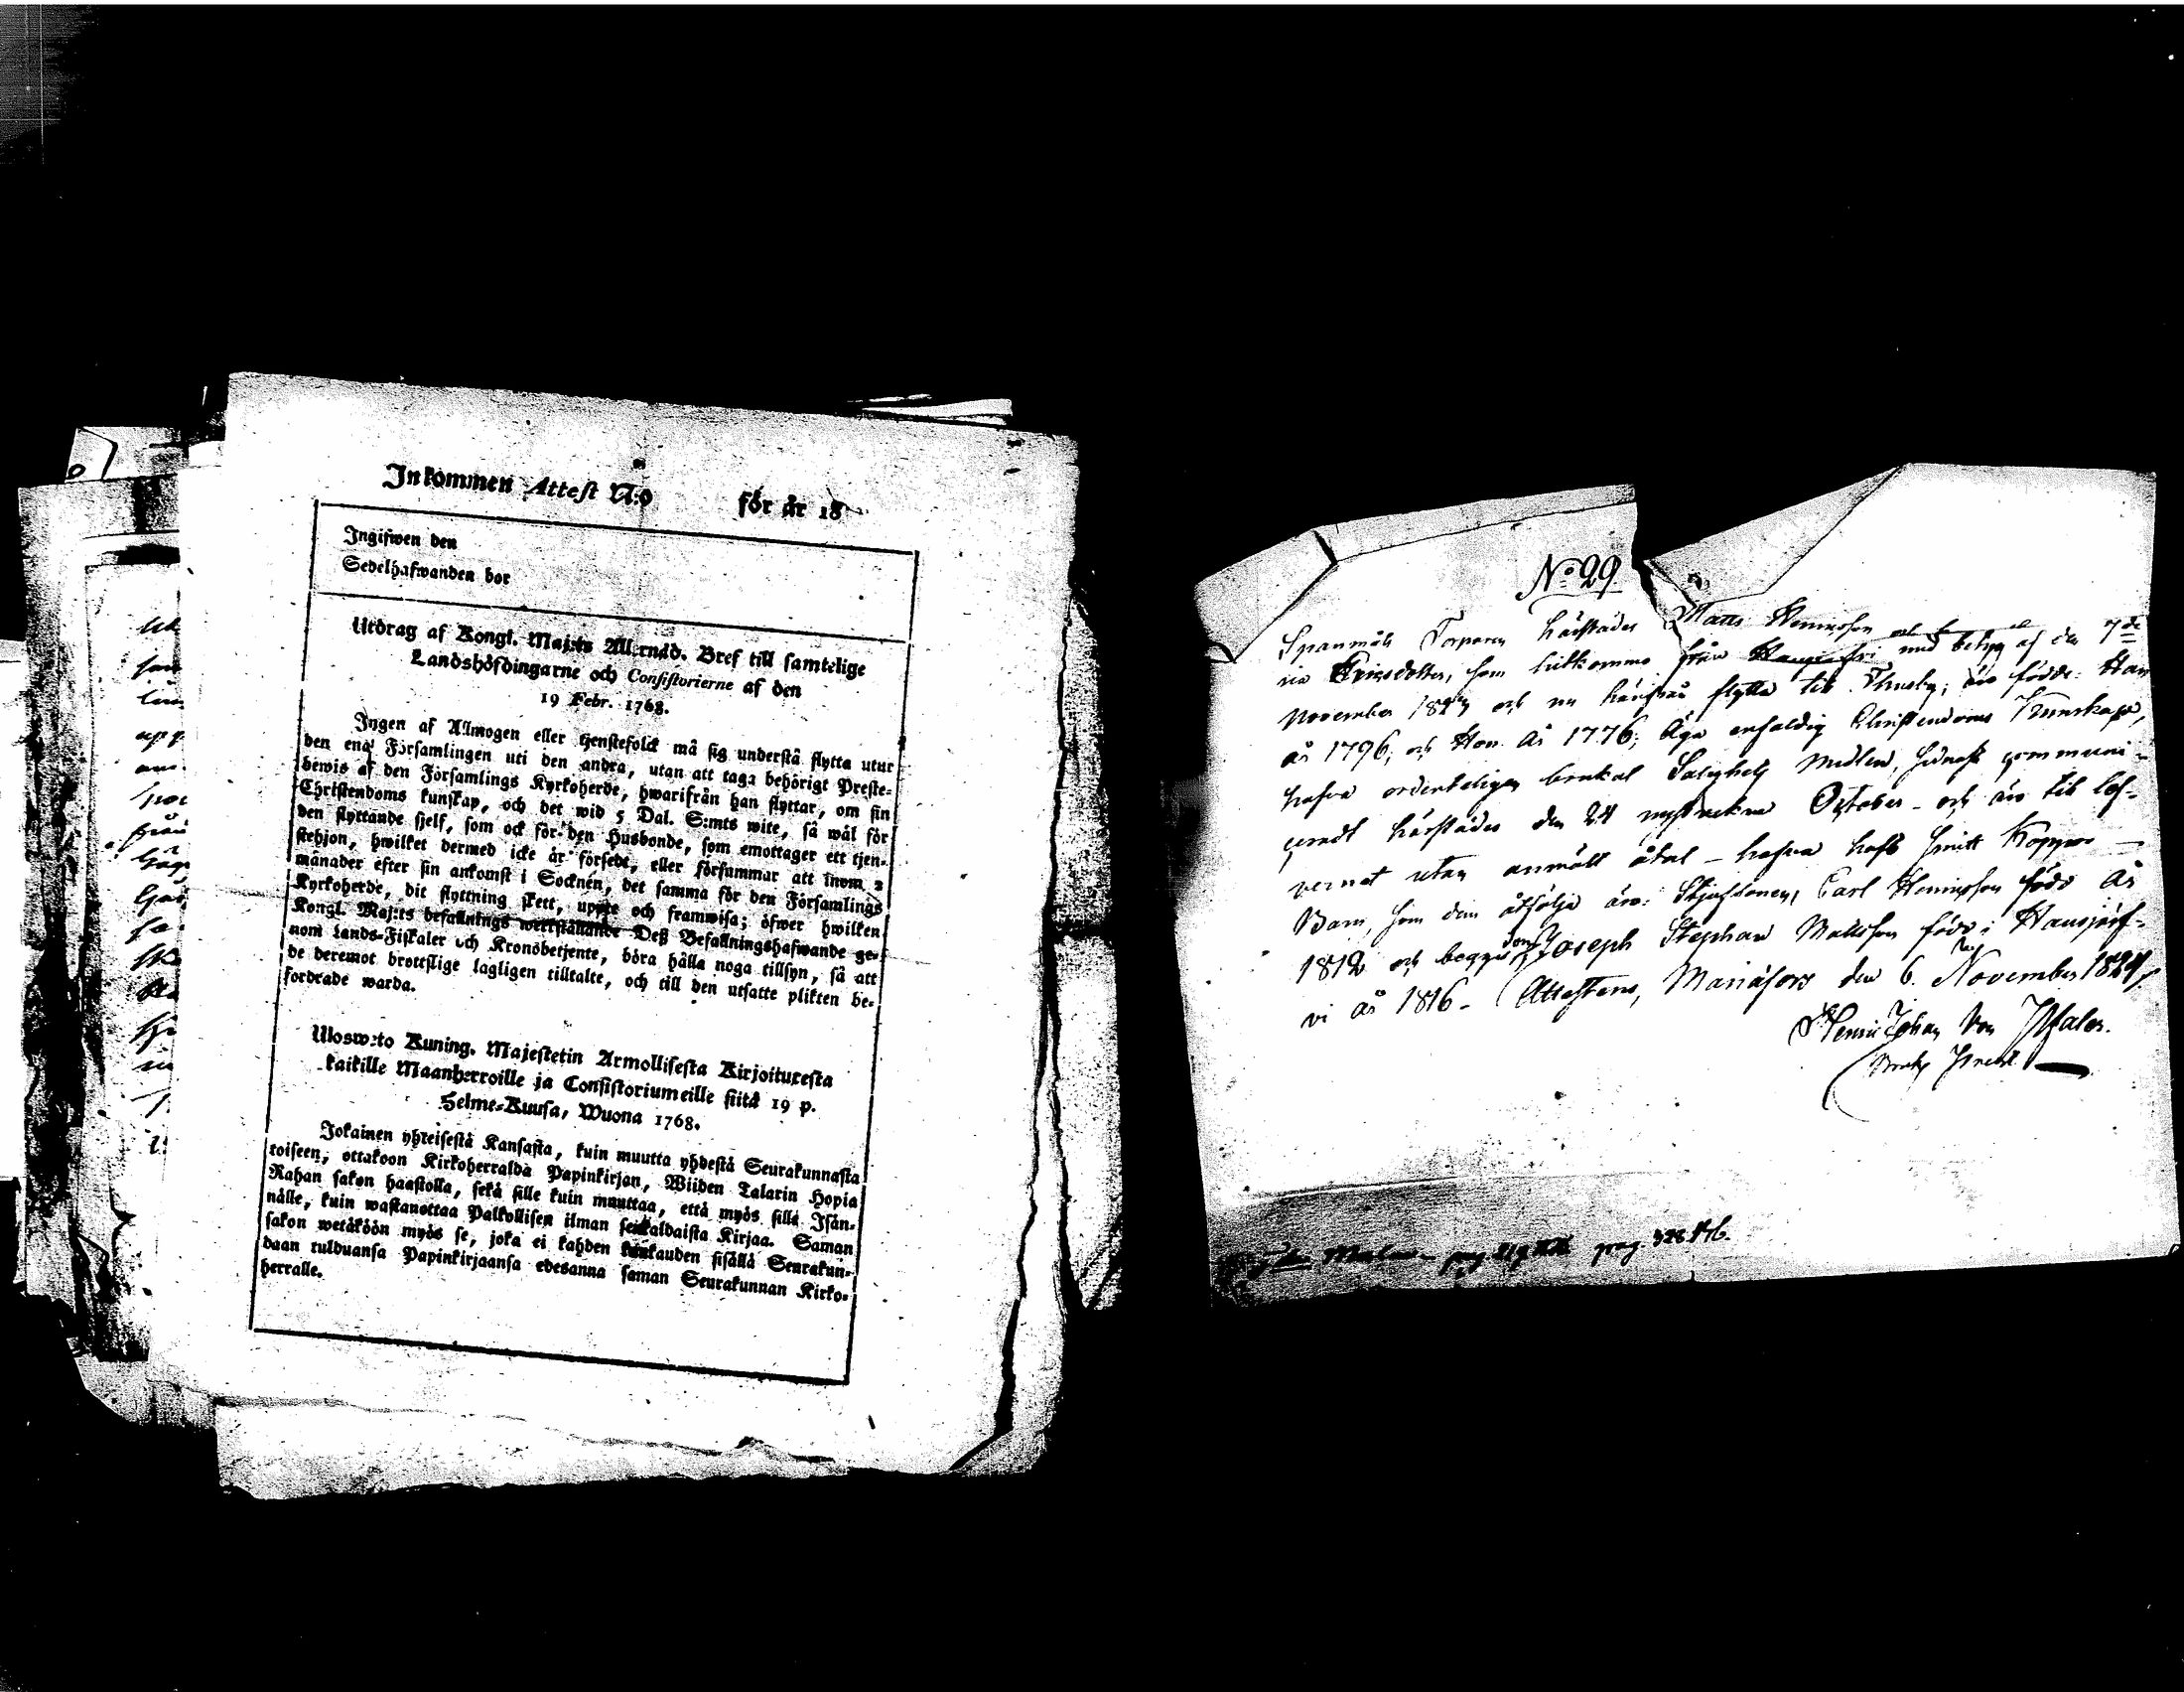 Inkommen Attest N:o för år 18
Ingifwen den
Sedelhafwanden bor
Utdrag af Kongl. Maj:ts Allernåd. Bref till samtelige
Landshöfdingarne och Consistorierne af den
19 Febr. 1768.
Ingen af Allmogen eller tjenstefolck må sig understå flytta utur
den ena Församlingen uti den andra, utan att taga behörigt Preste-
bewis af den Församlings Kyrkoherde, hwarifrån han flyttar, om sin
Christendoms kunskap, och det wid 5 Dal. S:mts wite, så wäl för
den flyttande sjelf, som ock för den Husbonde, som emottager ett tjen-
stehjon, hwilket dermed icke är försedt, eller försummar att inom 2
månader efter sin ankomst i Socknen, det samma för den Församlings
Kyrkoherde, dit flyttning skett, uppte och framwisa; öfwer hwilken
Kongl. Maj:ts befallnings werkställande Deß Befallningshafwande ge-
nom Lands-Fiskaler och Kronobetjente, böra hålla noga tillsyn, så att
de deremot brottslige lagligen tilltalte, och till den utsatte plikten be-
fordrade warda.
Ulosweto Kuning. Majestetin Armollisesta Kirjoituxesta
kaikille Maanherroille ja Consistoriumeille siitä 19 p.
Helme-Kuusa, Wuona 1768.
Jokainen yhteisestä Kansasta, kuin muutta yhdestä Seurakunnasta
toiseen, ottakoon Kirkoherralda Papinkirjan, Wiiden Talarin Hopia
Rahan sakon haastolla, sekä sille kuin muuttaa, että myös sillä Isän-
nälle, kuin wastanottaa Palkollisen ilman senkaldaista Kirjaa. Saman
sakon wetäköön myös se, joka ei kahden kuukauden sisällä Seurakun-
daan tulduansa Papinkirjaansa edesanna saman Seurakunnan Kirko-
herralle.
No 29
Spanmåls Torparen härstädes Matts Henricsson
Ericsdotter, som hitkommo från med betyg af den 7de
November och nu härifrån flytta till Thusby; äro födde: Han
år 1796, och Hon år 1776; äga enfaldig Christendoms Kunskap,
hafva ordenteligen brukat Salighets Medlen, sednast communi-
ceradt härstädes den 24 October och äro till lef-
vernet utan anmält åtal - hafva haft Koppor
Barn, som dem åtfölja äro: Styfsonen, Carl Henricsson född år
1812 och begges son Joseph Stephan Mattsson född i Hausjärf-
vi år 1816 - Attesteras, Mariäfors den 6. November 1824,
Henric Johan Von Pfaler.
pag. pag. 328